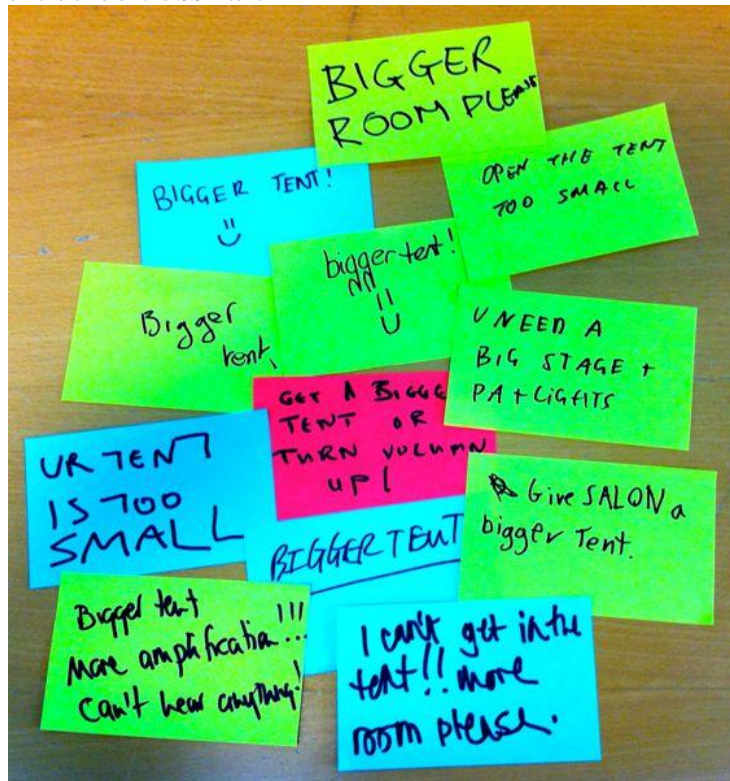 BIGGER
ROOM PLEASE
BIGGER TENT!
OPEN THE TENT
TOO SMALL
bigger tent!
Bigger
tent
U NEED A
BIG STAGE +
PA + LIGHTS
GET A BIGGE
TENT OR
TURN VOLUMN
UP!
UR TENT
IS TOO
SMALL
Give SALON a
bigger Tent.
BIGGER TENT
Bigger tent
More amplification!!!
Can't hear anything!
I can't get in the
tent!! more
room please.